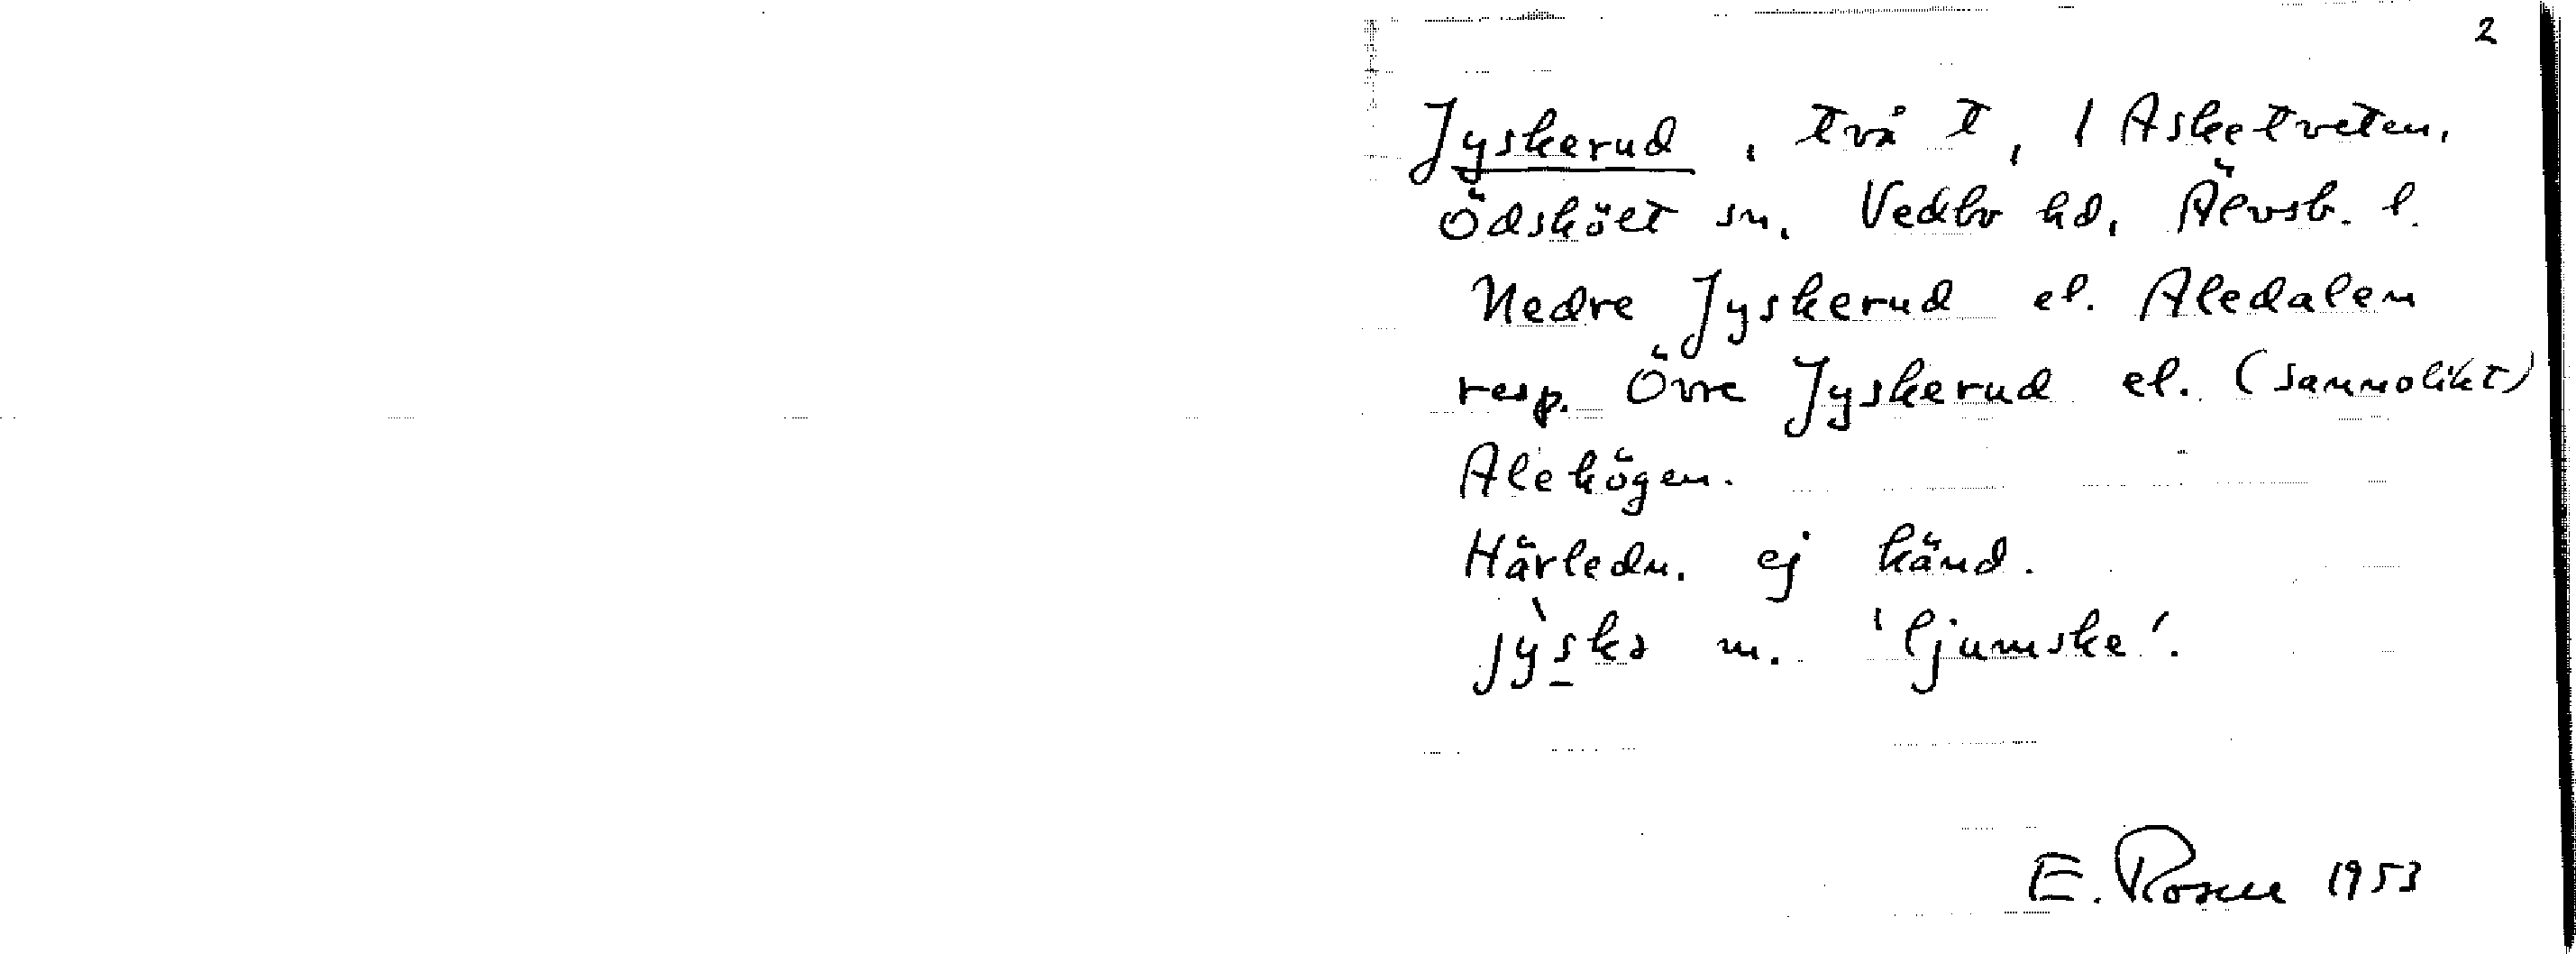 2
Jyskerud, två t, / Asketveten,
Ödskölt sn, Vedbo hd, Älvsb. l.
Nedre Jyskerud el. Aledalen
resp. Övre Jyskerud el. (sannolikt)
Alehögen.
Härledn. ej känd.
jỳskə m. 'ljumske'.
E. Rosell 1953